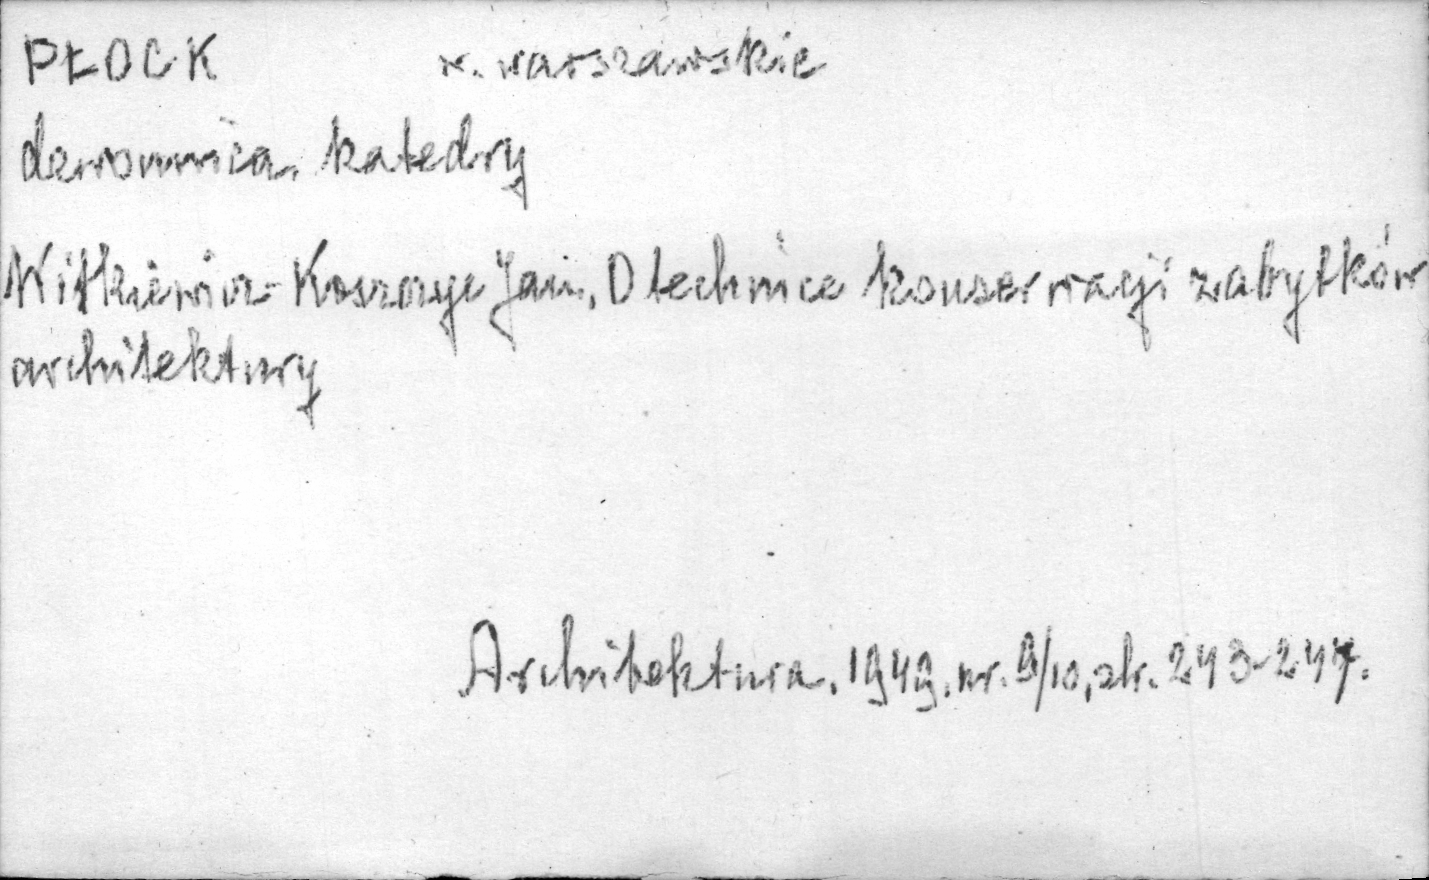 PŁOCK w. warszawskie
dzwonnica katedry
Witkiewicz-Koszczyc Jan, O technice konserwacji zabytków
architektury
Architektura. 1949. nr. 9/10, str. 243-247.